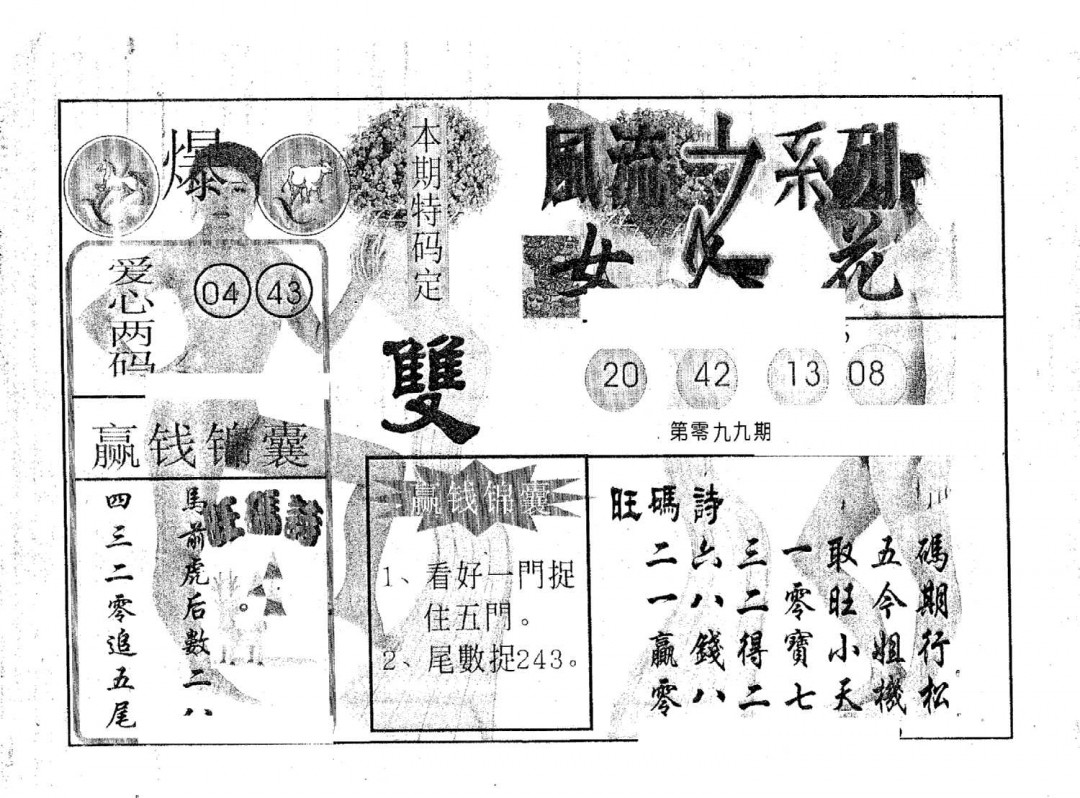 爆
本期特码定
雙
風流之系列
女人花
爱心两码
04 43
20 42 13 08
第零九九期
赢钱锦囊
旺碼詩
馬前虎后數二八
四三二零追五尾
赢钱锦囊
1、看好一門捉
住五門。
2、尾數捉243。
旺碼詩
二六三一取五碼
一八二零旺今期
贏錢得寶小姐行
零八二七天機松